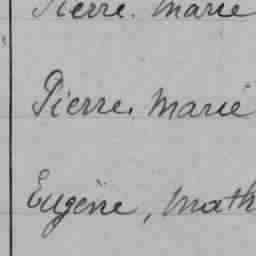 Pierre. Marie
Pierre. Marie
Eugène, Math